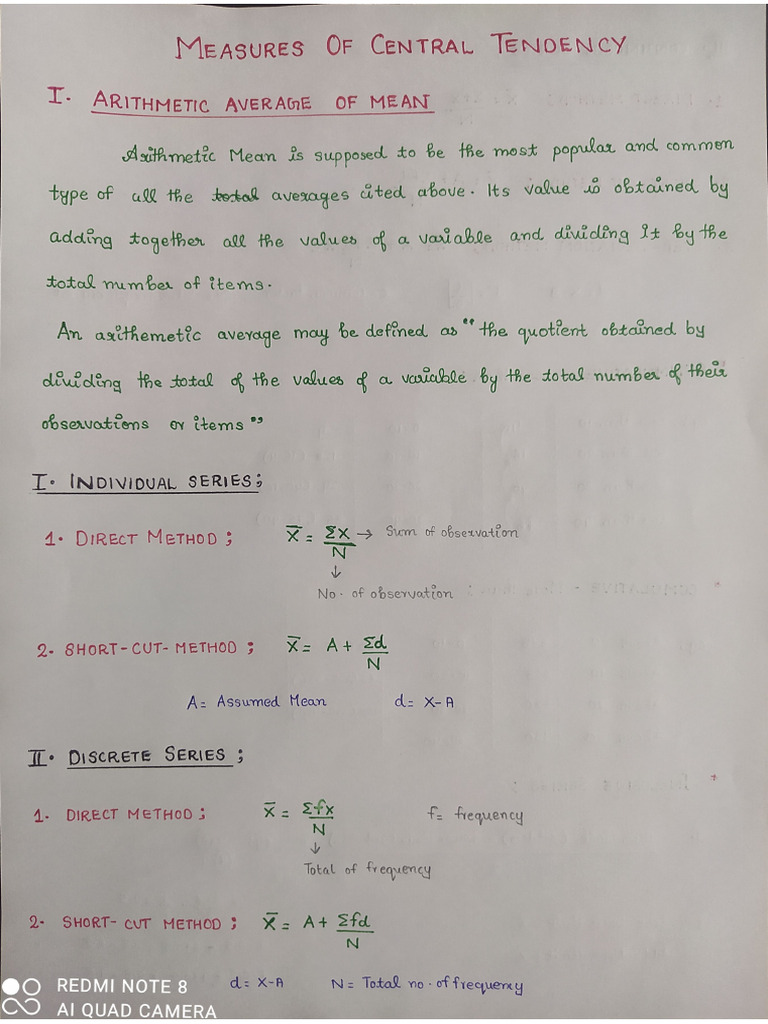 MEASURES OF CENTRAL TENDENCY
I. ARITHMETIC AVERAGE OF MEAN
Arithmetic Mean is supposed to be the most popular and common
type of all the total averages cited above. Its value is obtained by
adding together all the values of a variable and dividing It by the
total number of items.
An arithemetic average may be defined as "the quotient obtained by
dividing the total of the values of a variable by the total number of their
observations or items"
I. INDIVIDUAL SERIES;
1. DIRECT METHOD; X̄ = ΣX/N → Sum of observation
↓
No. of observation
2. SHORT-CUT-METHOD; X̄ = A + Σd/N
A = Assumed Mean d = X-A
II. DISCRETE SERIES;
1. DIRECT METHOD; X̄ = Σfx/N f = frequency
↓
Total of frequency
2. SHORT-CUT METHOD; X̄ = A + Σfd/N
d = X-A N = Total no. of frequency
REDMI NOTE 8
AI QUAD CAMERA